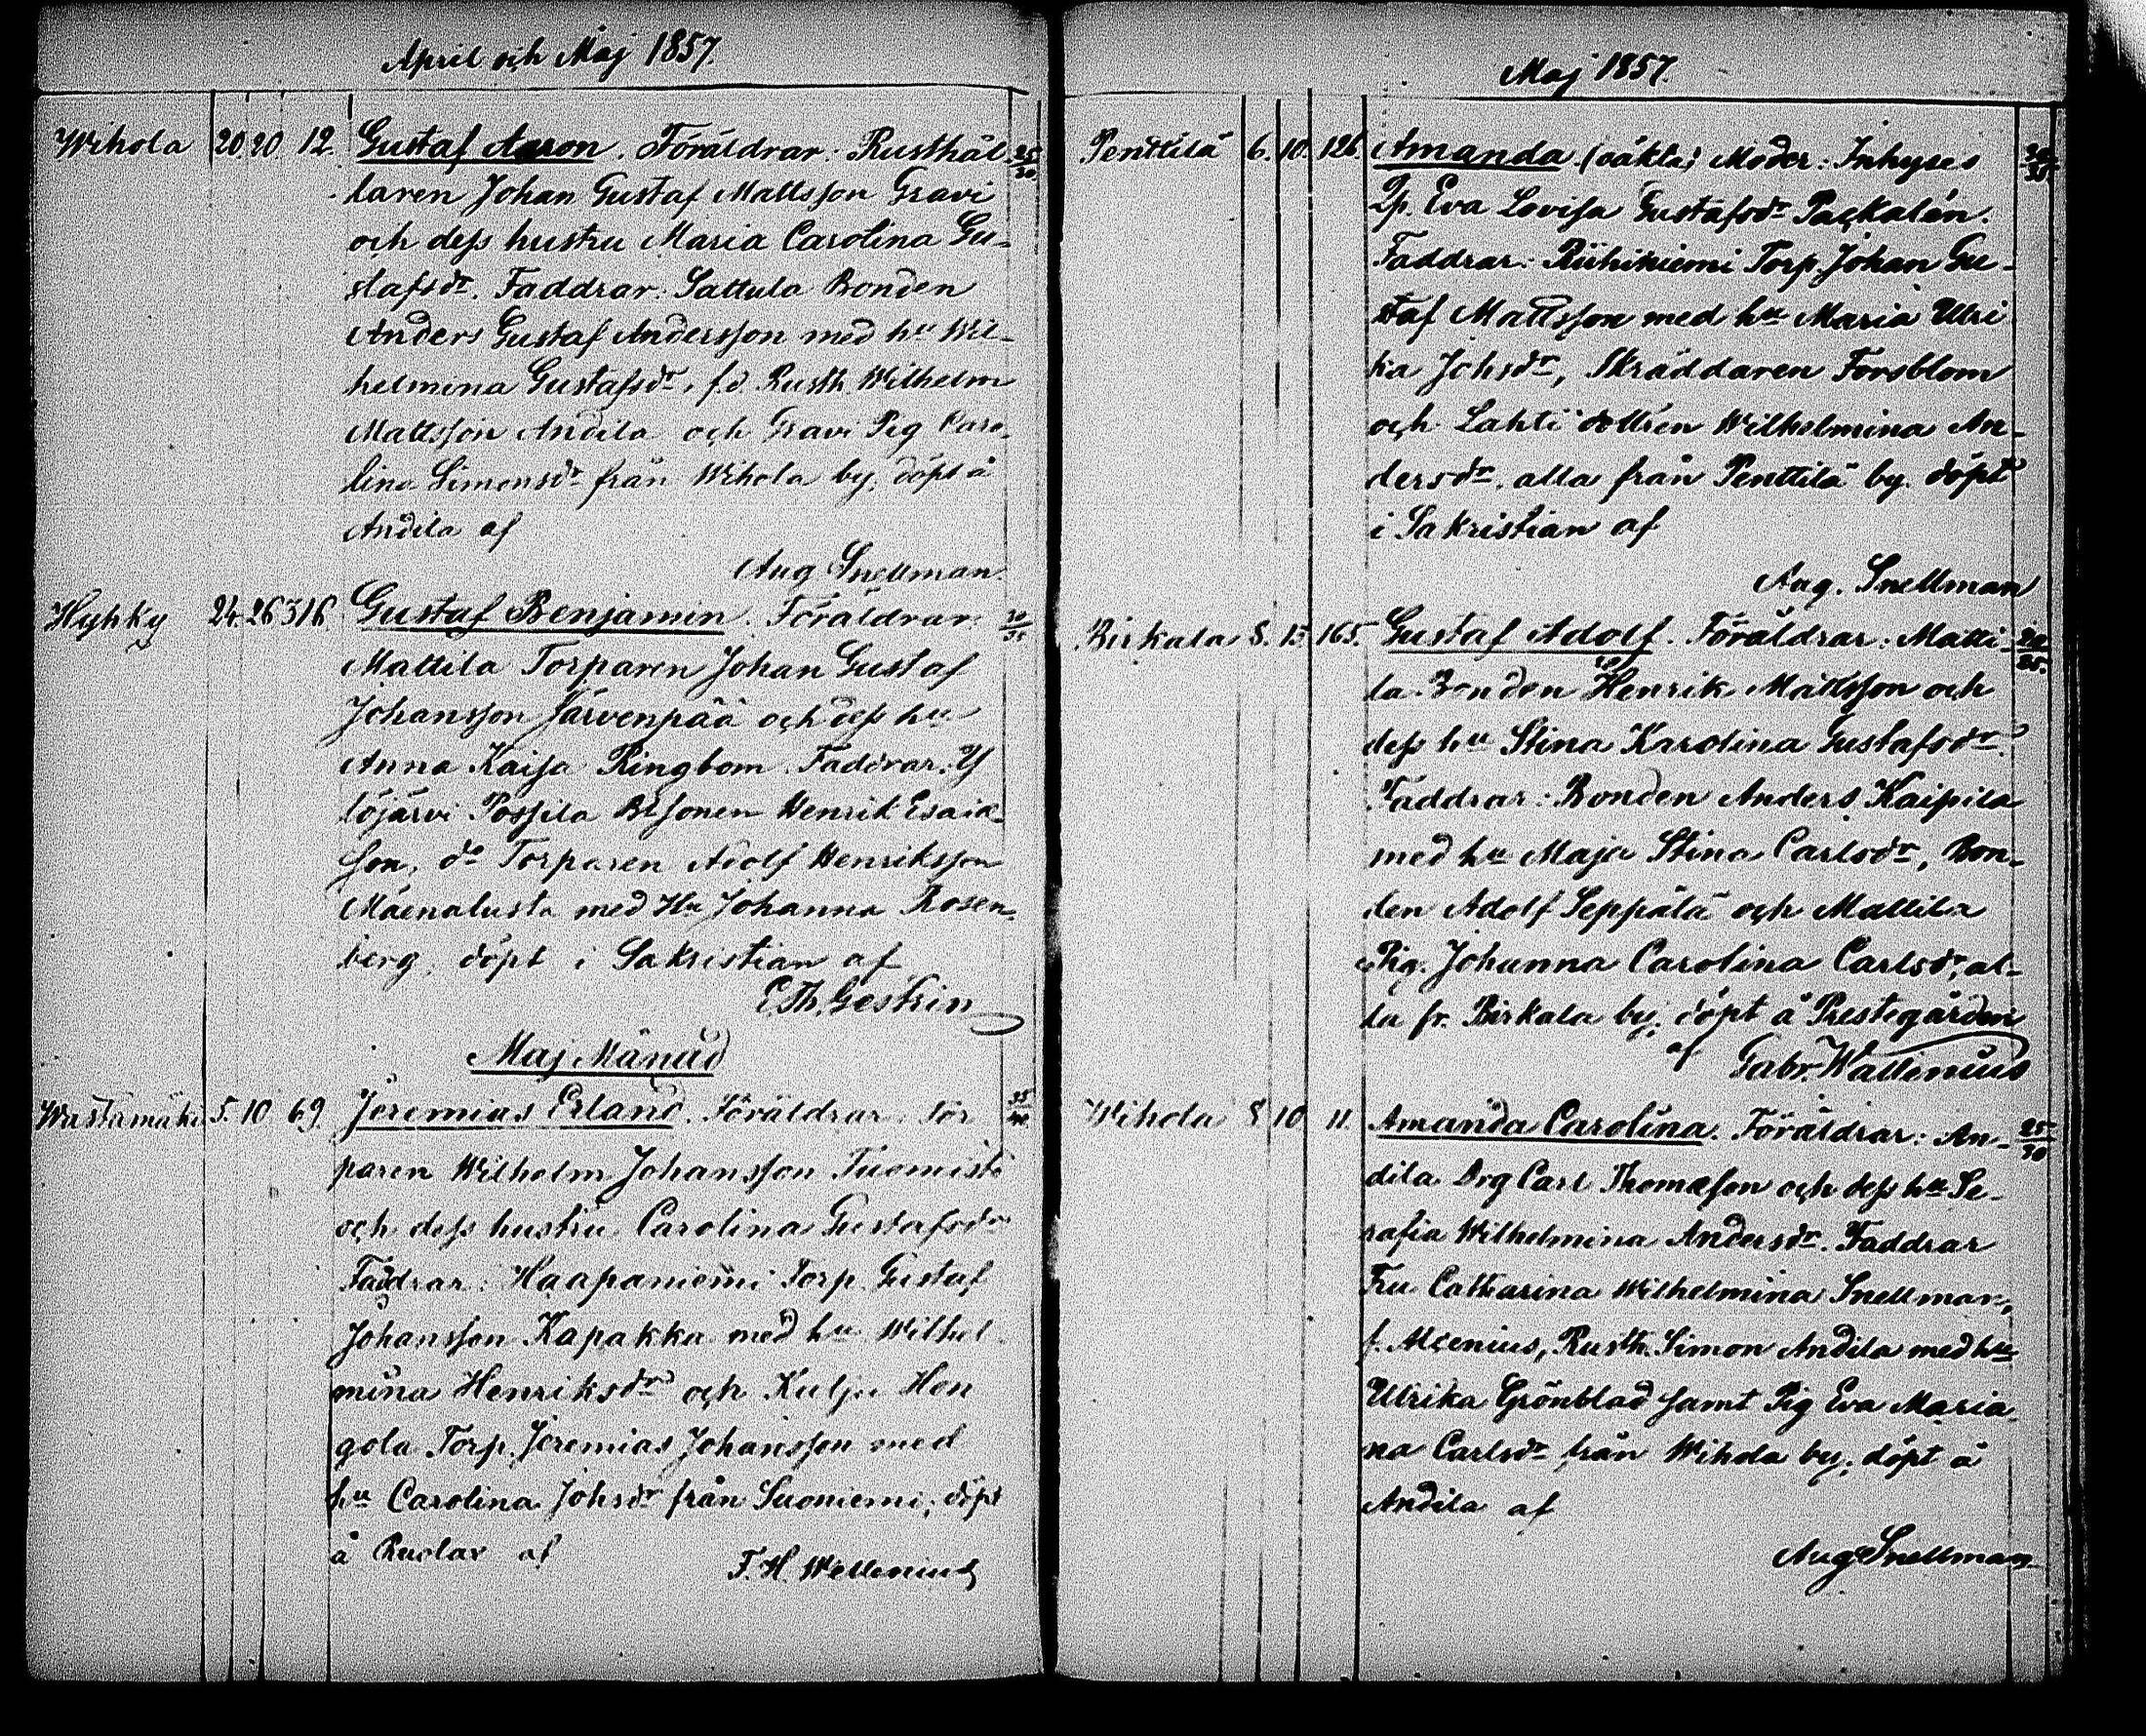 April och Maj 1857.
Wihola 20. 20. 12. Gustaf Aaron. Föräldrar: Rusthål- 25/30
laren Johan Gustaf Mattsson Gravi
och dess hustru Maria Carolina Gu-
stafsdr. Faddrar: Sattula Bonden
Anders Gustaf Andersson med hu Wil-
helmina Gustafsdr, f.d. Rusth. Wilhelm
Mattsson Andila och Gravi Pig Caro-
lina Simonsdr från Wihola by, döpt å
Andila af
Aug Snellman.
Hyhky 24. 26 316. Gustaf Benjamin. Föräldrar: 30/35
Mattila Torparen Johan Gustaf
Johansson Järvenpää och dess hu
Anna Kaisa Ringbom. Faddrar: Y
löjärvi Possila Bsonen Henrik Esaias-
son, do Torparen Adolf Henriksson
Mäenalusta med Hu Johanna Rosen-
berg, döpt i Sakristian af
E.Th. Geskin
Maj Månad
Wastamäki 5. 10 69. Jeremias Erland. Föräldrar: Tor 35/40
paren Wilhelm Johansson Tuomisto
och dess hustru Carolina Gustafsdr
Faddrar: Haapaniemi Torp. Gustaf
Johansson Kapakka med hu Wilhel
mina Henriksdr och Kulju Hen
gola Torp. Jeremias Johansson med
hu Carolina Johsdr från Suoniemi, döpt
å Ruolar af F. H. Wallenius
Maj 1857.
Penttilä 6. 10. 126. Amanda (oäkta) Moder: Inhyses 30/35
Qp. Eva Lovisa Gustafsdr Packalén.
Faddrar: Riihiniemi Torp. Johan Gu-
staf Mattsson med hu Maria Ulri
ka Johsdr, Skräddaren Forsblom
och Lahti dottren Wilhelmina An-
dersdr. alla från Penttilä by. döpt
i Sakristian af
Aug. Snellman
Birkala 8. 13 165. Gustaf Adolf. Föräldrar: Matti- 20/25.
la Bonden Henrik Mattsson och
dess hu Stina Karolina Gustafsdr.
Faddrar: Bonden Anders Kaipila
med hu Maja Stina Carlsdr, Bon-
den Adolf Seppälä och Mattila
Pig. Johanna Carolina Carlsdr, al-
la fr. Birkala by; döpt å Prestegården
af Gabr. Wallenius
Wihola 8 10 11. Amanda Carolina. Föräldrar: An- 25/30
dila Drg Carl Thomasson och dess hu Se-
rafia Wilhelmina Andersdr. Faddrar
Fru Catharina Wilhelmina Snellman,
f. Alcenius, Rusth. Simon Andila med hu
Ulrika Grönblad samt Pig Eva Maria-
na Carlsdr från Wihola by, döpt å
Andila af
Aug Snellman